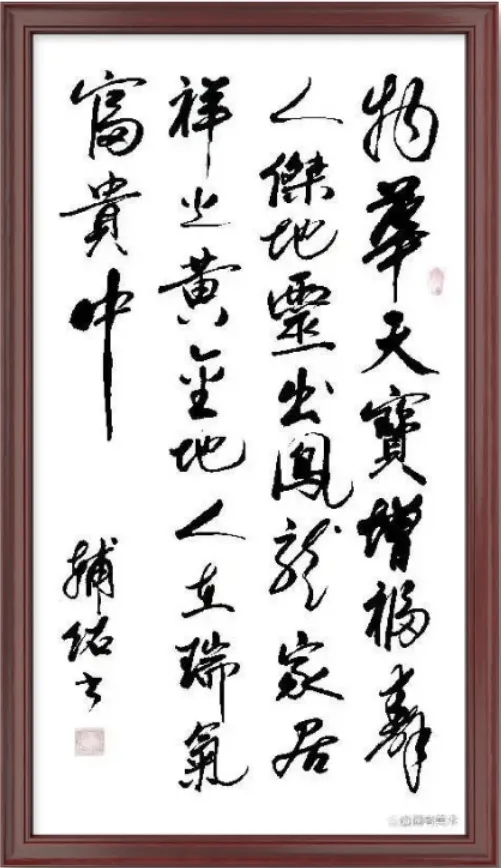 物華天寶增福壽
人傑地靈出鳳龍家居
祥光黃金地人在瑞氣
富貴中
輔銘書